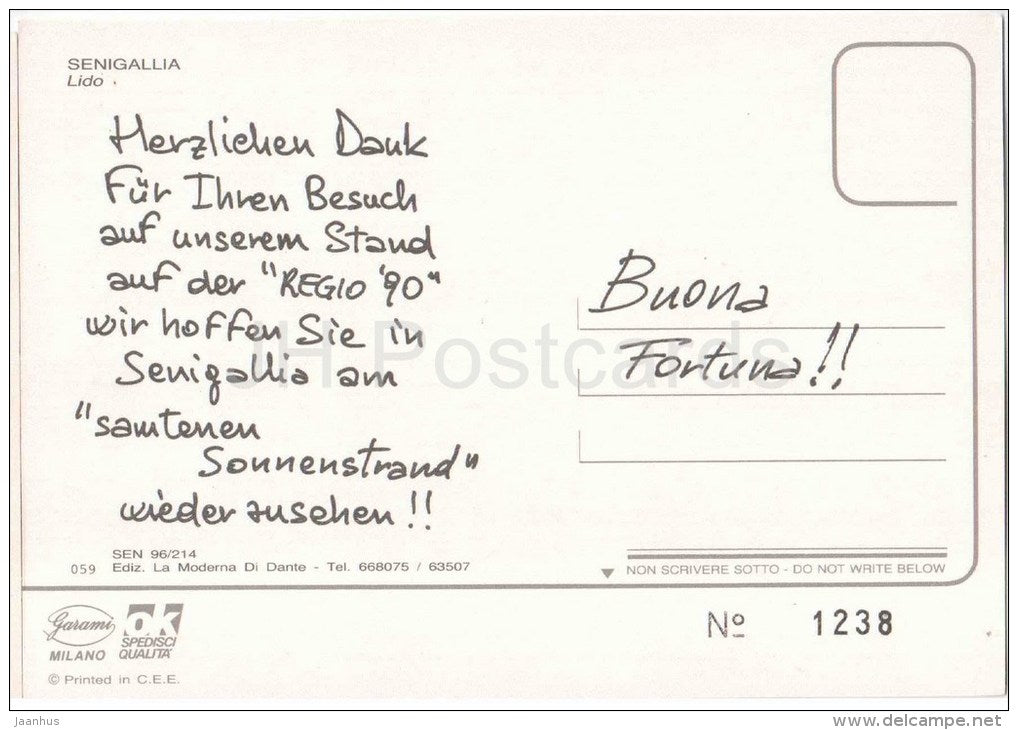 SENIGALLIA
Lido
Herzlichen Dank
Für Ihren Besuch
auf unserem Stand
auf der "REGIO '90"
wir hoffen Sie in
Senigallia am
"samtenen
Sonnenstrand"
wieder zusehen!!
Buona
Fortuna!!
JH Postcards
SEN 96/214
059 Ediz. La Moderna Di Dante - Tel. 668075 / 63507
NON SCRIVERE SOTTO - DO NOT WRITE BELOW
Garami
MILANO
ok
SPEDISCI
QUALITA'
© Printed in C.E.E.
Nº 1238
Jaanhus
www.delcampe.net